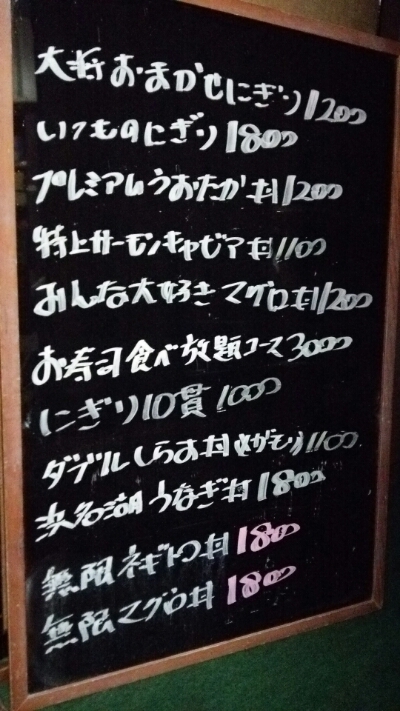 大将おまかせにぎり1200
いつものにぎり1800
プレミアムうおたか丼1200
特上サーモンキャビア丼1100
みんな大好きマグロ丼1200
お寿司食べ放題コース3000
にぎり10貫1000
ダブルしらす丼(メガモリ)1100
浜名湖うなぎ丼1800
無限ネギトロ丼1800
無限マグロ丼1800